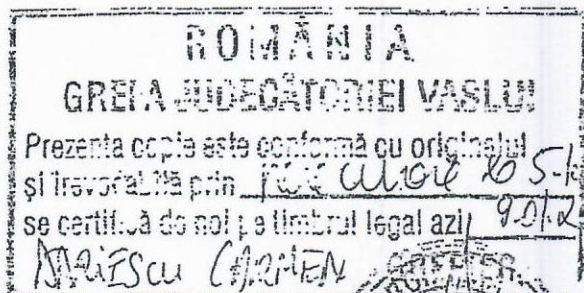 ROMÂNIA
GREFA JUDECĂTORIEI VASLUI
Prezenta copie este conformă cu originalul
și irevocabilă prin
se certifică de noi pe timbrul legal azi
CARMEN
GREFIER